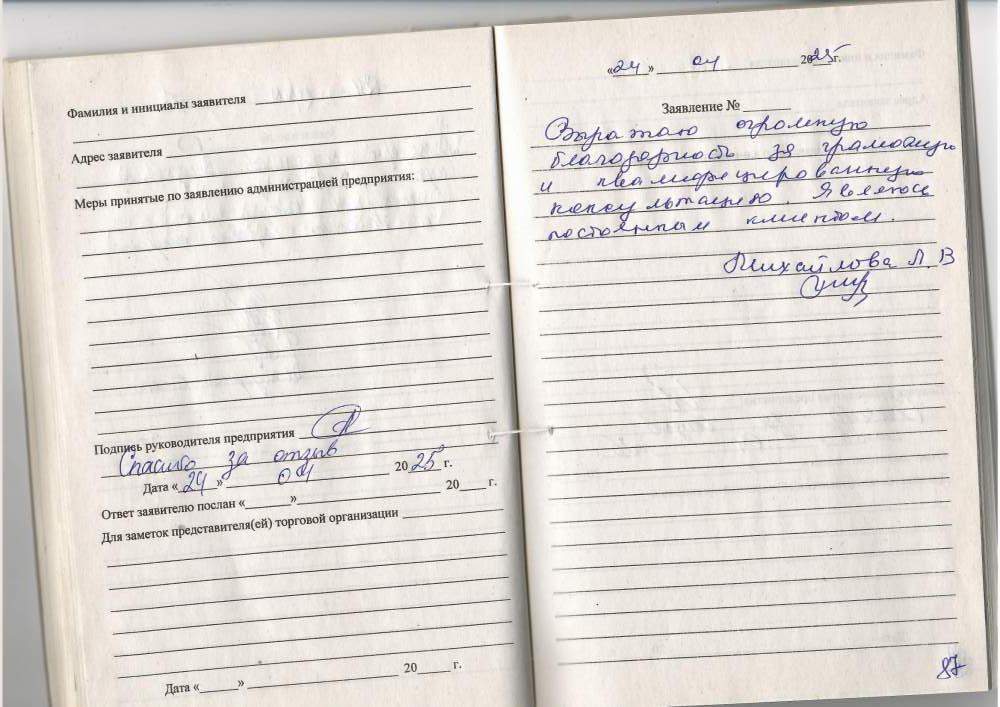 Фамилия и инициалы заявителя
Адрес заявителя
Меры принятые по заявлению администрацией предприятия:
Подпись руководителя предприятия
Спасибо за отзыв
Дата «24» 04 2025 г.
Ответ заявителю послан «    » 20    г.
Для заметок представителя(ей) торговой организации
Дата «    » 20    г.
«24» 04 2025 г.
Заявление №
Выражаю огромную
благодарность за грамотную
и квалифицированную
консультацию. Являюсь
постоянным клиентом.
Михайлова Л. В
87